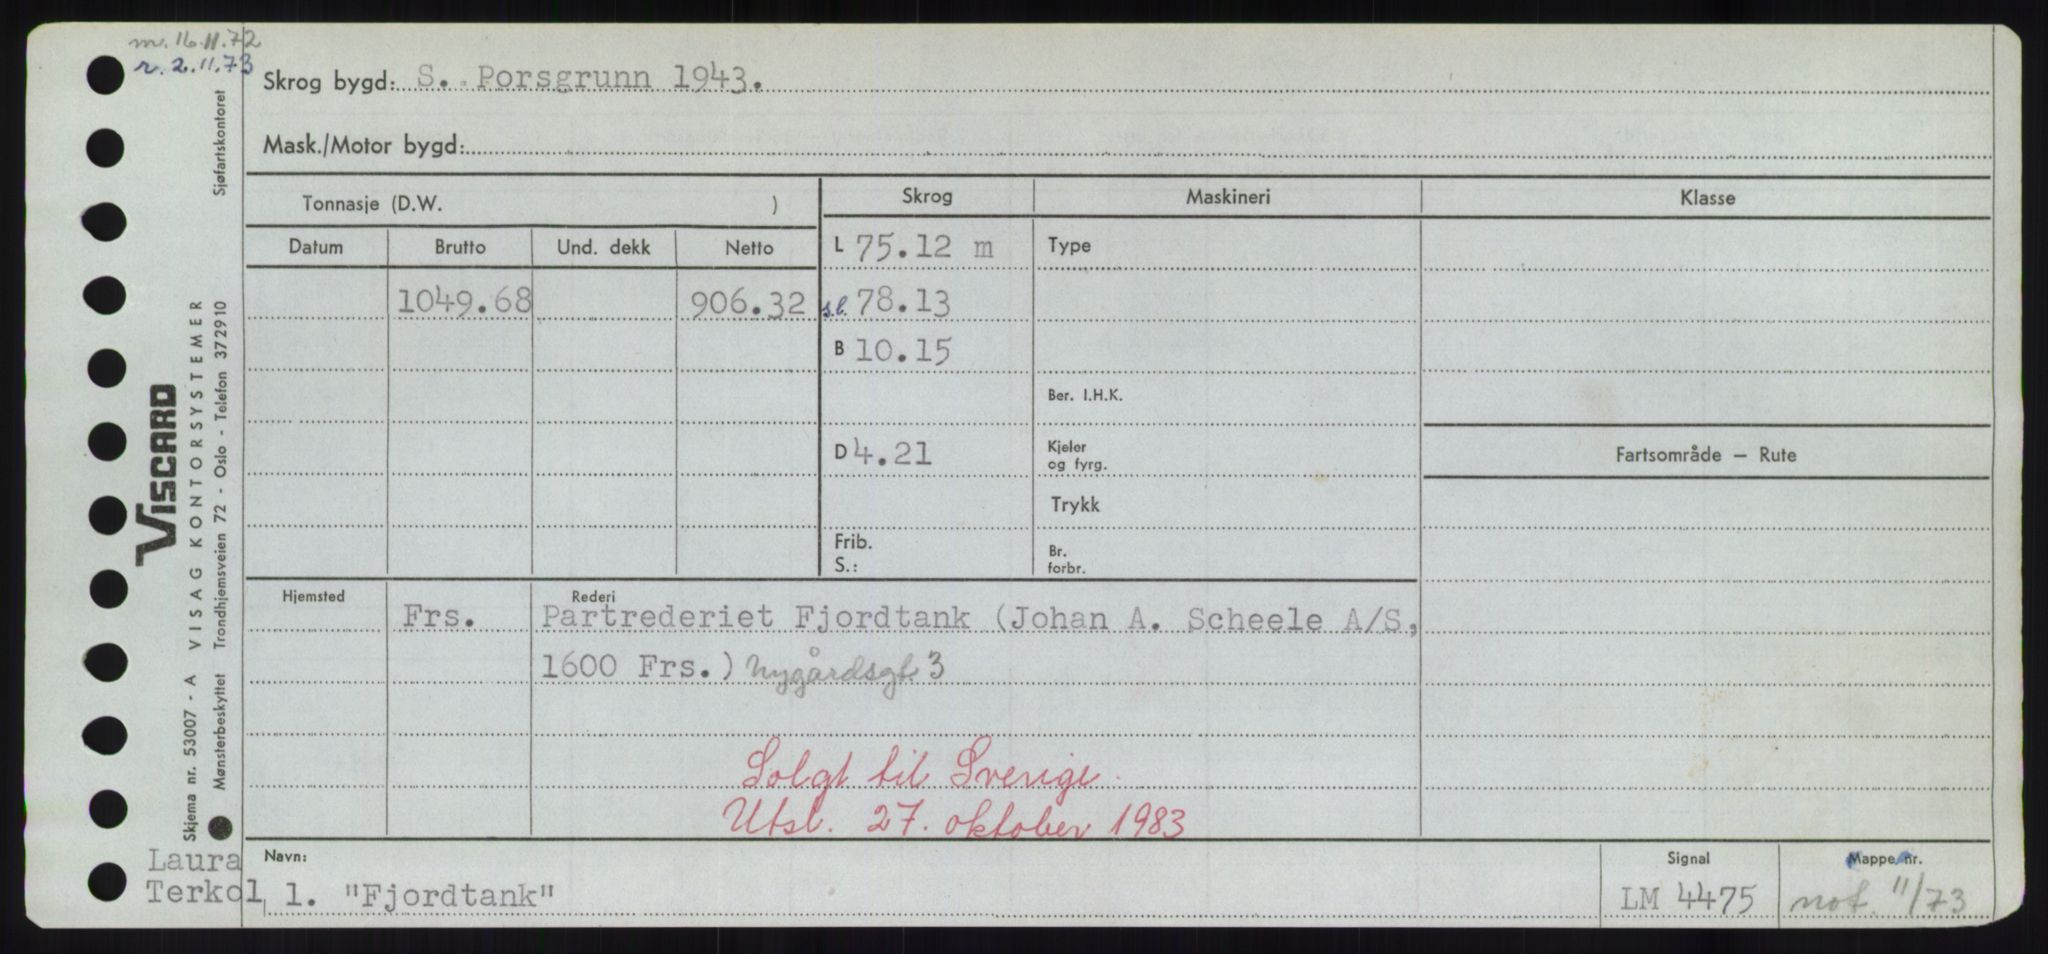 m. 16.11.72
r. 2.11.73
Skrog bygd: S. Porsgrunn 1943.
Mask./Motor bygd:
Tonnasje (D.W. )
Skrog
Maskineri
Klasse
Datum
Brutto
Und. dekk
Netto
L 75.12 m
Type
1049.68
906.32
s.l. 78.13
B 10.15
Ber. I.H.K.
D 4.21
Kjeler
og fyrg.
Fartsområde – Rute
Trykk
Frib.
S.:
Br.
forbr.
Hjemsted
Rederi
Frs.
Partrederiet Fjordtank (Johan A. Scheele A/S,
1600 Frs.) Nygårdsgt. 3
Solgt til Sverige.
Utsl. 27. oktober 1983
Laura
Terkol
Navn:
1. "Fjordtank"
Signal
LM 4475
Mappe nr.
not. 11/73
VISCARD
Skjema nr. 53007 - A VISAG KONTORSYSTEMER
Mønsterbeskyttet Trondhjemsveien 72 - Oslo - Telefon 372910 Sjøfartskontoret